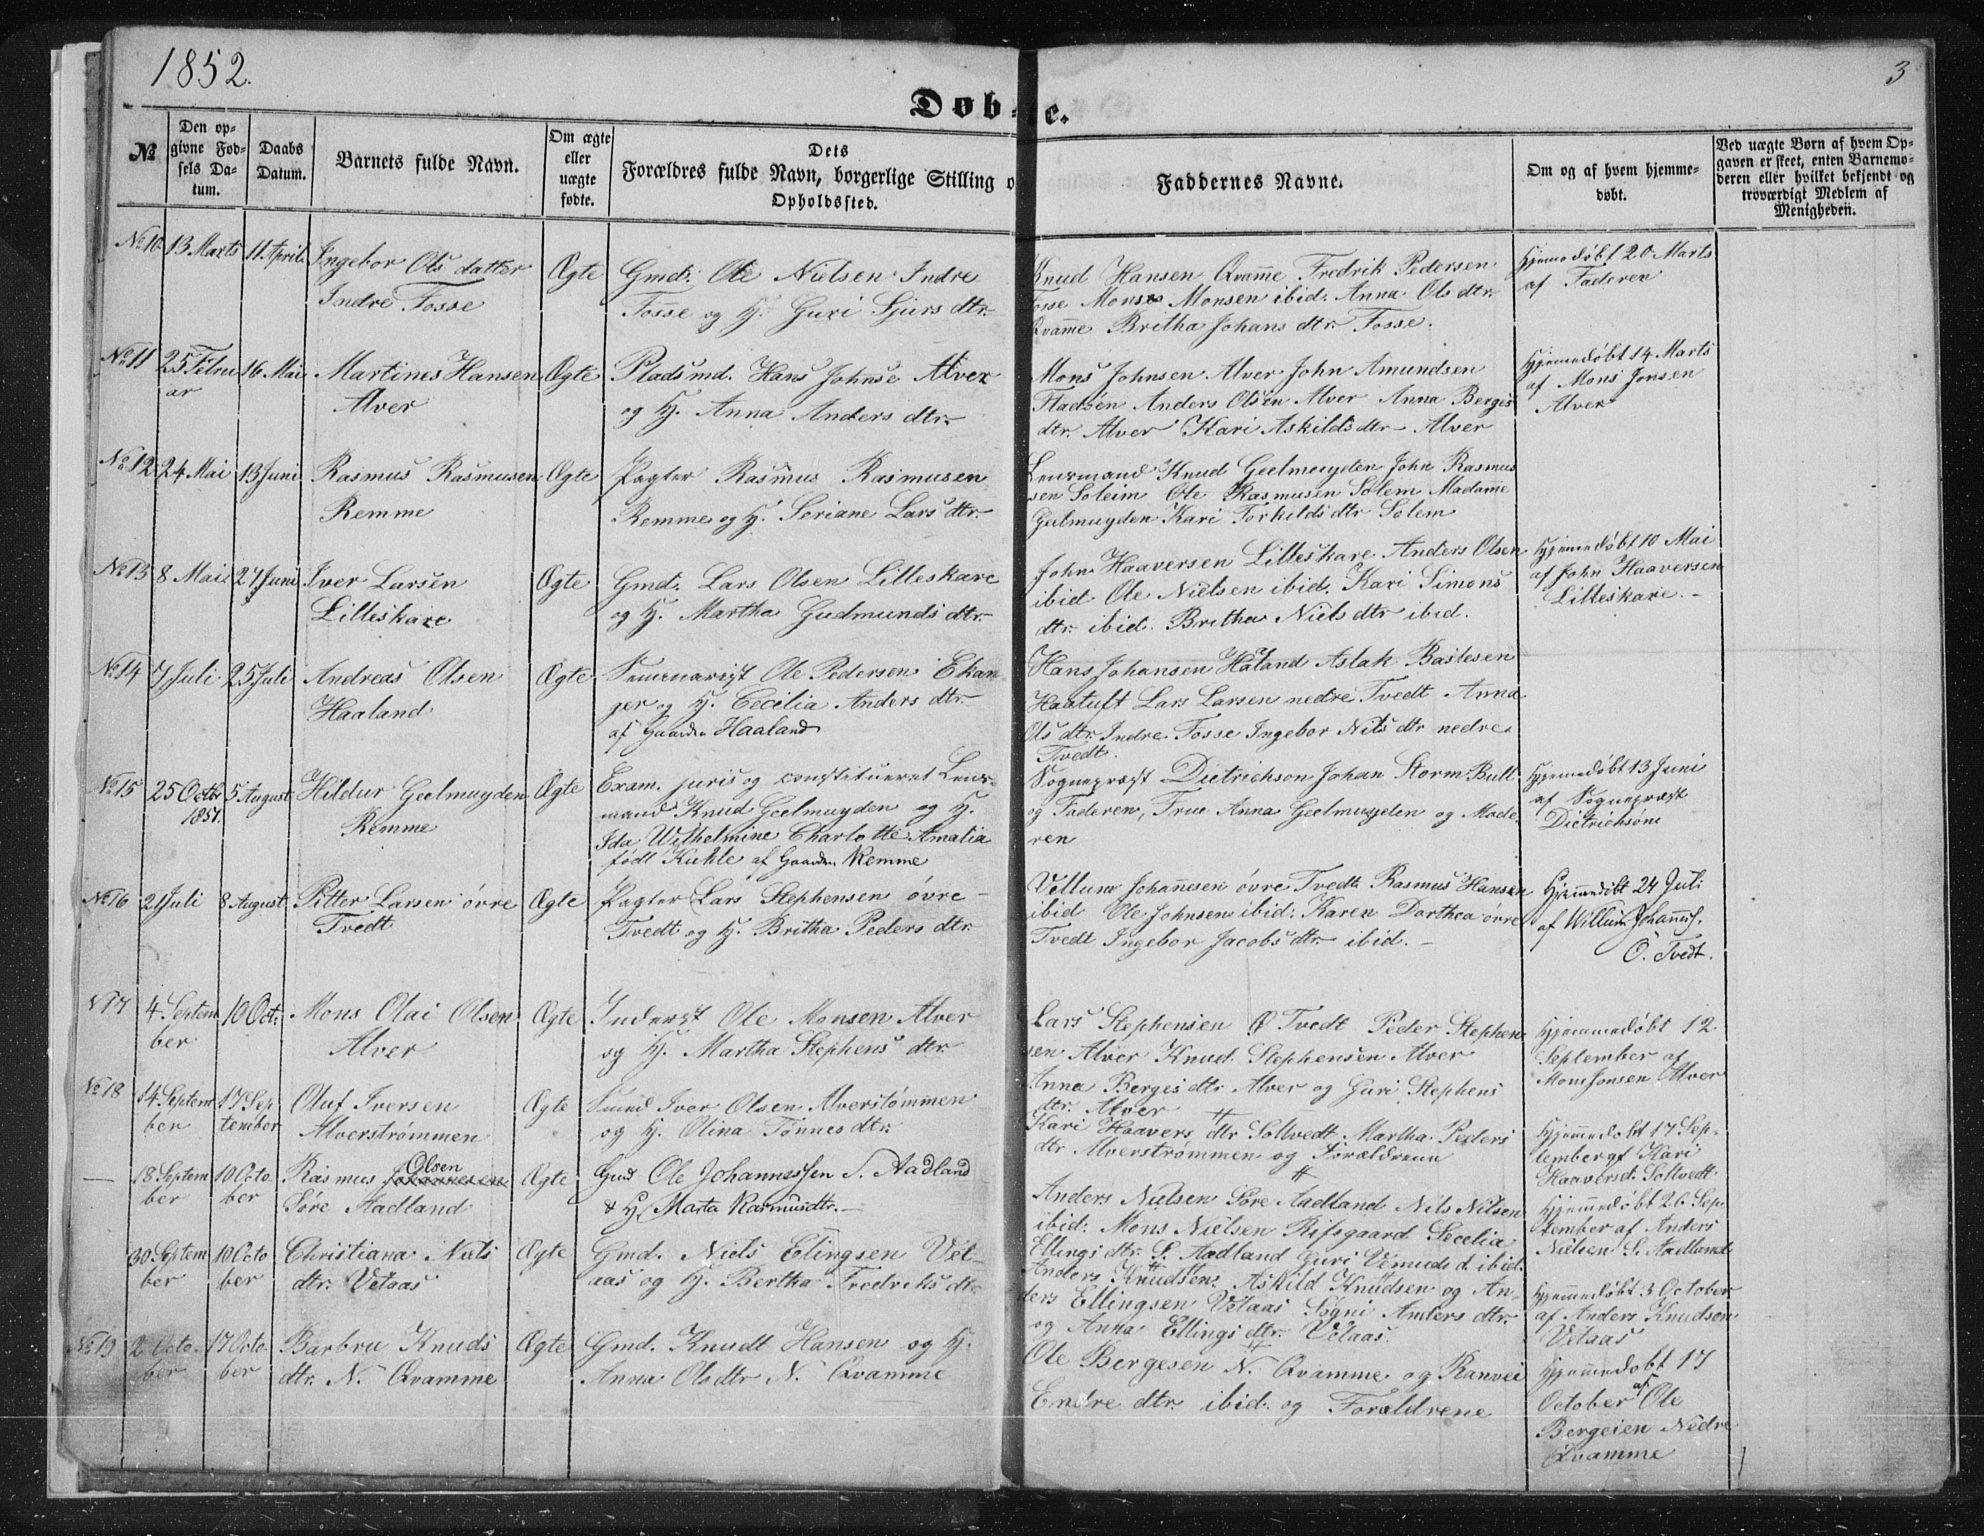 1852.
3
Døbte.
№
Den op-
givne Fød-
sels Da-
tum.
Daabs
Datum.
Barnets fulde Navn.
Om ægte
eller
uægte
fødte.
Dets
Forældres fulde Navn, borgerlige Stilling o
Opholdssted.
Faddernes Navne.
Om og af hvem hjemme-
døbt.
Ved uægte Børn af hvem Op-
gaven er skeet, enten Barnemo-
deren eller hvilket bekjendt og
troværdigt Medlem af
Menigheden.
No 10 13 Marts 11 April Ingebor Ols datter
Indre Fosse
Ægte
Gmd. Ole Nielsen Indre
Fosse og H. Guri Sjurs dtr.
Knud Hansen Qvam̄e Fredrik Pedersen
Fosse Mons Monsen ibid. Anna Ols dtr.
Qvam̄e Britha Johans dtr. Fosse.
Hjemedöbt 20 Marts
af Faderen
No 11 25 Febru
ar
16 Mai
Martines Hansen
Alver
Ægte
Pladsmd. Hans Johnse Alver
og H. Anna Anders dtr.
Mons Johnsen Alver John Amundsen
Anders Olsen Alver Anna Berges
dtr. Alver Kari Askilds dtr Alver
Hjemedöbt 14 Marts
af Mons Jonsen
Alver
No 12 24 Mai 13 Juni
Rasmus Rasmusen
Remme
Ægte
Pagter Rasmus Rasmusen
Remme og H. Seriane Lars dtr.
Lensmand Knud Geelmuyden John Rasmus
sen Soleim Ole Rasmusen Solem Madam̄e
Geelmuyden Kari Torkilds dtr Solem
No 13 8 Mai 27 Juni
Iver Larsen
Lilleskare
Ægte
Gmd. Lars Olsen Lilleskare
og H. Martha Gudmunds dtr.
John Haaversen Lilleskare Anders Olsen
ibid Ole Nielsen ibid. Kari Simons
dtr. ibid. Britha Niels dtr ibid.
Hjemedöbt 10 Mai
af John Haaversen
Lilleskare.
No 14 7 Juli 25 Juli
Andreas Olsen
Haaland
Ægte
Seminarist Ole Pedersen Ekan
ger og H. Cecilia Anders dtr.
af Gaarden Haaland
Hans Johansen Håland Aslak Bastesen
Haatuft Lars Larsen nedre Tvedt Anna
Ols dtr. Indre Fosse Ingebor Nils dtr nedre
Tvedt.
No 15 25 Octbr
1851.
5 August
Hildur Geelmuyden
Remme
Ægte
Exam. juris og constitueret Lens-
mand Knud Geelmuyden og H.
Ida Wilhelmine Charlotte Amalia
född Kuhle af Gaarden Remme
Sognepræst Dietrichson Johan Storm Bull
og Faderen, Frue Anna Geelmuyden og Mode
ren
Hjemedöbt 13 Juni
af Sognepræst
Dietrichson
No 16 21 Juli 8 August
Pitter Larsen övre
Tvedt
Ægte
Pagter Lars Stephensen övre
Tvedt og H. Britha Peders dtr.
Vellum Johannesen övre Tvedt Rasmus Hansen
ibid Ole Johnsen ibid. Karen Dorthea övre
Tvedt Ingebor Jacobs dtr. ibid.
Hjemmedöbt 24 Juli
af Willum Johannes.
Ö. Tvedt.
No 17 4 Septem
ber
10 Oct.
Mons Olai Olsen
Alver
Ægte
Inderst Ole Monsen Alver
og H. Martha Stephens dtr.
Lars Stephensen Ø Tvedt Peder Stephen
sen Alver Knud Stephensen Alver
Anna Berges dtr Alver og Guri Stephens
dtr. Alver
Hjemmedöbt 12
September af
Mons Jonsen Alver
No 18 14 Septem
ber
17 Sep
tember
Oluf Iversen
Alverströmmen
Ægte
Iver Olsen Alverströmmen
og H. Olina Tönnes dtr.
Kari Haavers dtr Soltvedt Martha Peders
dtr Alverströmmen og Forældrene
Hjemmedobt 17 Sep-
tember af Kari
Haaversd. Soltvedt
18 Septem
ber
10 Octo
ber
Rasmus Johannesen Olsen
Söre Aadland
Ægte
Gmd Ole Johannessen S. Aadland
& H. Marta Rasmusdtr.
Anders Nielsen Söre Aadland Nils Nilsen
ibid. Mons Nielsen Rifsgaard Secelia
Ellings dtr. S. Aadland Guri Vemuds d. ibid
Hjemmedöbt 26 Sep
tember af Anders
Nielsen S. Aadland
30 Septem
ber
10 Octo
ber
Christiana Niels
dtr. Vetaas
Ægte
Gmd. Niels Elingsen Vet-
aas og H. Bertha Fredriks dtr
Anders Knudsen Askild Knudsen og An-
ders Ellingsen Vetaas Sogni Anders dtr.
og Anna Ellings dtr. Vetaas.
Hjemmedöbt 3 October
af Anders Knudsen
Vetaas
No 19 2 Octo
ber
17 Octo
ber
Barbru Knuds
dtr. N. Qvamme
Ægte
Gmd. Knudt Hansen og H.
Anna Olsdtr N. Qvamme
Ole Bergesen N. Qvamme og Ranvei
Endre dtr. ibid. og Foraldrene
Hjemmedobt 17
October af Ole
Bergesen Nedre
Qvamme